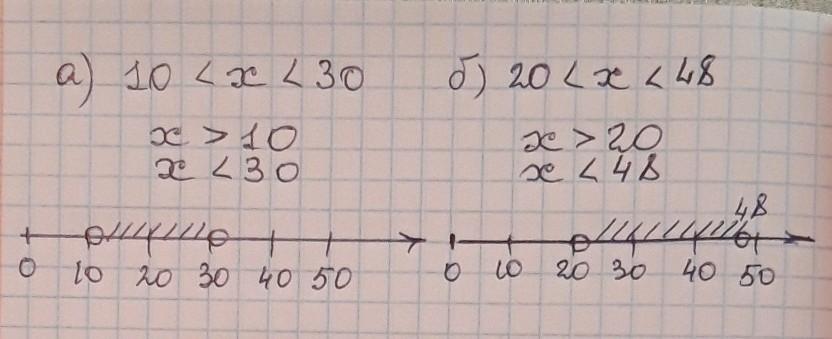 а) 10 < x < 30
x > 10
x < 30
0 10 20 30 40 50
б) 20 < x < 48
x > 20
x < 48
48
0 10 20 30 40 50